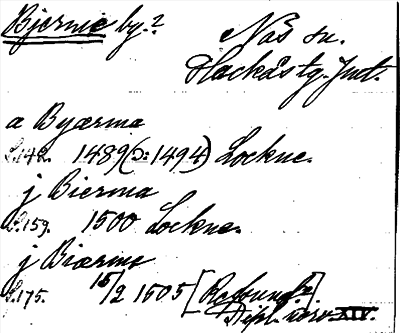 Bjerme by.?
Näs sn.
Hackås tg. Jmt.
a Byærma
S.142. 1489(ɔ: 1494) Lockne.
j Bierma
S.159. 1500 Lockne.
j Biærme
S.175. 15/2 1505 [Ragund?]
Dipl. XIV.